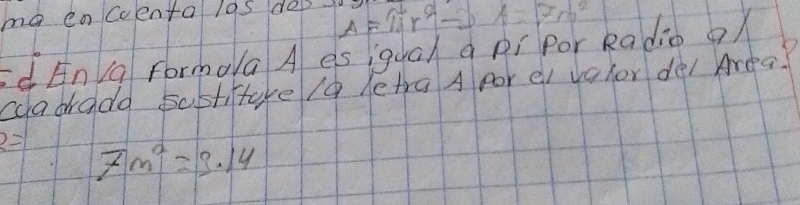 ma en cuenta los dos
A = πr² → A = 7m²
d En la formola A es igual a pi por Radio al
cuadrado sustituye la letra A por el valor del Area?
R=
7m² = 3.14